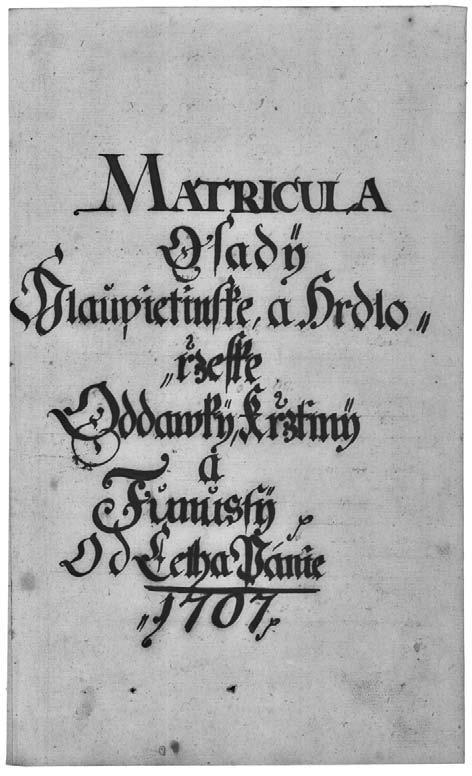 MATRICULA
Osadÿ
Hlaŭpietinske, a Hrdlo„
„řzeske
Oddawkÿ, Křztinÿ
a
Fŭnŭssÿ
Od Letha Pánie
„1707